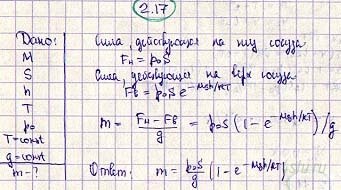 2.17
Дано:
M
S
h
T
p₀
T=const
g=const
m-?
Сила, действующая на низ сосуда
Fн = p₀S
Сила, действующая на верх сосуда
Fв = p₀S e^(-Mgh/RT)
m = (Fн - Fв)/g = p₀S (1 - e^(-Mgh/RT))/g
Ответ: m = p₀S/g (1 - e^(-Mgh/RT))